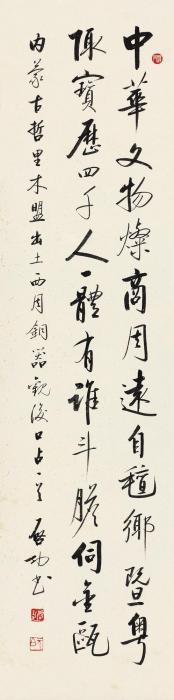 中華文物燦商周遠自氈鄉暨粵
陬寶歷四千人一體有誰斗膽伺金甌
內蒙古哲里木盟出土西周銅器觀後口占一首 啟功書